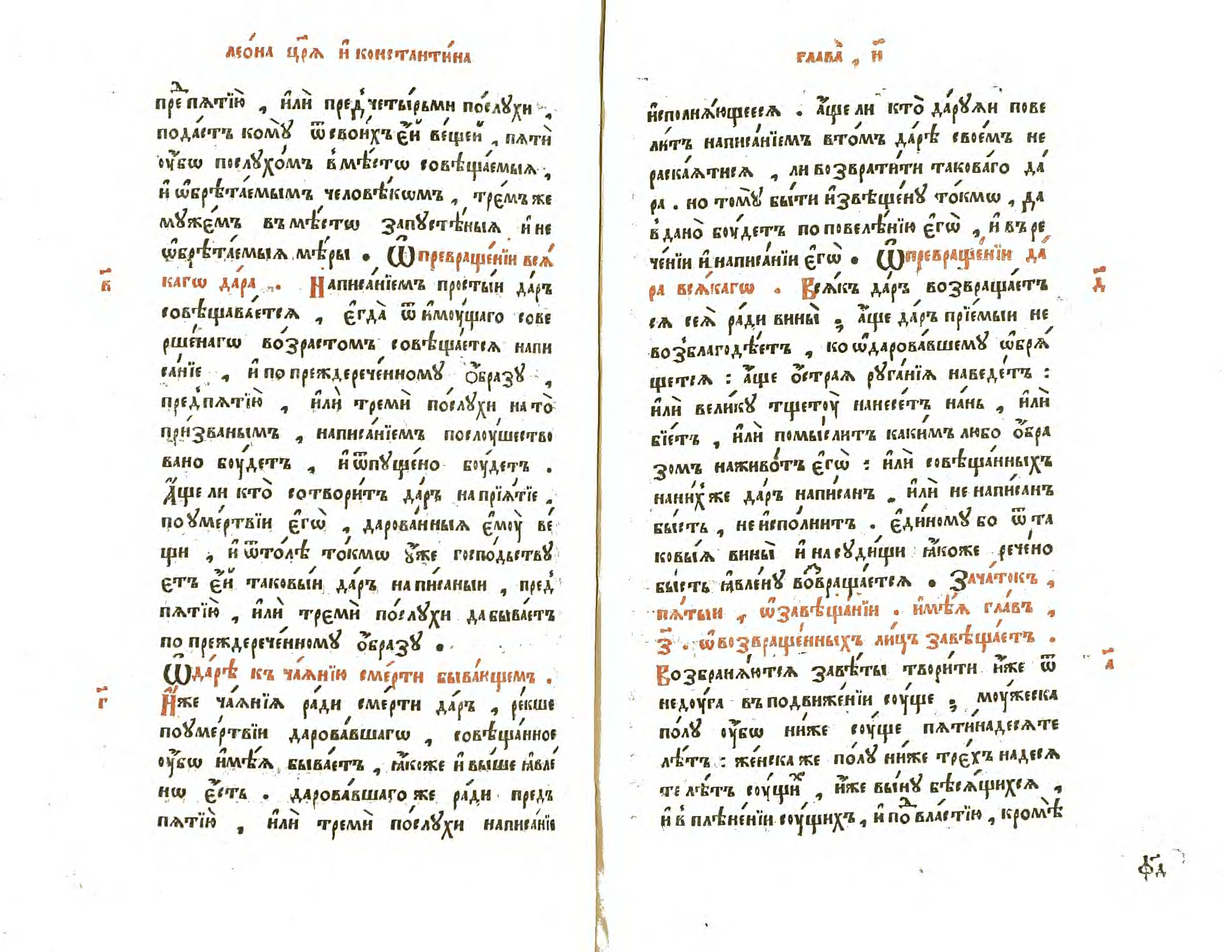 леѡ́на цр҃ѧ и҆ константи́на
пред̾ пѧтїю̀ , и҆лѝ пред̾ четы́рьми по́слꙋхи ,
пода́стъ комꙋ̀ ѿ свои́хъ є҆й веще́й , пѧтѝ
оу҆́бѡ послꙋхо́мъ в̾ мѣ́стѡ совѣща́емыѧ ,
и҆ ѡ҆брѣта́емымъ человѣ́кѡмъ , тре́мъ же
мꙋже́мъ въ мѣ́стѡ запꙋстѣ́ныѧ и҆ не
ѡ҆брѣта́емыѧ мѣ́ры . Ѿ превраще́нїи всѧ́
в҃
кагѡ да́ра . Написа́нїемъ просты́и да́ръ
совѣщава́етсѧ , є҆гда̀ ѿ и҆мꙋ́щаго сове
рше́нагѡ во́зрастомъ совѣща́етсѧ напи
са́нїе , и҆ по преждерече́нномꙋ ѻ҆́бразꙋ ,
пред̾ пѧтїю̀ , и҆лѝ тремѝ по́слꙋхи на то̀
при́званымъ , написа́нїемъ послоу́шество
вано бꙋ́детъ , и҆ ѿпꙋ́щено бꙋ́детъ .
А҆́ще ли кто̀ сотвори́тъ да́ръ на прїѧ́тїе ,
по оу҆ме́ртвїи є҆гѡ̀ , дарова́нныѧ є҆мꙋ̀ ве́
щи , и҆ ѿто́лѣ то́кмѡ оу҆́же госпо́дьствꙋ
етъ є҆й таковы́и да́ръ написаныи , пред̾
пѧтїю̀ , и҆лѝ тремѝ по́слꙋхи да быва́етъ
по преждерече́нномꙋ ѻ҆́бразꙋ .
Ѡ҆ да́рѣ къ ча́ѧнїю сме́рти быва́ющемъ .
г҃
И҆́же ча́ѧнїѧ ра́ди сме́рти да́ръ , ре́кше
по оу҆ме́ртвїи дарова́вшагѡ , совѣща́нное
оу҆́бѡ и҆мѣ́ѧ быва́етъ , ꙗ҆́коже и҆ вы́ше ꙗ҆вле
нѡ є҆́сть . дарова́вшаго же ра́ди предъ
пѧтїю̀ , и҆лѝ тремѝ по́слꙋхи написа́нїе
глава̀ , и҃
и҆сполнѧ́ющеесѧ . а҆́ще ли кто̀ да́рꙋѧи пове
ли́тъ написа́нїемъ в то́мъ да́рѣ свое́мъ не
раска́ѧтисѧ , ли возврати́ти такова́го да́
ра . но томꙋ̀ бы́ти и҆звѣще́нꙋ то́кмѡ , да
в̾дано̀ бꙋ́детъ по повелѣ́нїю є҆гѡ̀ , и҆ въ ре
че́нїи и҆ написа́нїи є҆гѡ̀ . Ѿ превраще́нїи да́
д҃
ра всѧ́кагѡ . Всѧ́къ да́ръ возвраща́етъ
сѧ сеѧ̀ ра́ди вины̀ ; а҆́ще да́ръ прїе́мыи не
возблагодѣ́етъ , ко ѡ҆дарова́вшемꙋ ѡ҆брѧ́
щетсѧ : а҆́ще ѻ҆́страѧ рꙋга́нїѧ наведе́тъ :
и҆лѝ вели́кꙋ тщетꙋ̀ нанесе́тъ на́нь , и҆лѝ
бїе́тъ , и҆лѝ помы́слитъ каки́мъ любо ѻ҆́бра
зомъ на живо́тъ є҆гѡ̀ : и҆лѝ совѣща́нныхъ
на ни́хже да́ръ написанъ , и҆лѝ не написанъ
бы́сть , не и҆спо́лнитъ . є҆ди́номꙋ бо ѿ та
ковы́ѧ вины̀ и҆ на сꙋди́щи ꙗ҆́коже рече́но
бы́сть ꙗ҆влену̀ во́звраща́етсѧ . Зача́токъ ,
пѧ́тыи , ѡ҆ завѣща́нїи . и҆мѣ́ѧ гла́въ ,
з҃ . ѡ҆ возвраще́нныхъ ли́цъ завѣща́етъ .
а҃
Возбранѧ́ютсѧ завѣ́ты твори́ти и҆̀же ѿ
недꙋ́га въ подвиже́нїи сꙋ́ще ; мꙋ́жеска
по́лꙋ оу҆́бѡ ни́же сꙋ́ще пѧтина́десѧте
лѣ́тъ : же́нска же по́лꙋ ни́же тре́хъ надесѧ
те лѣ́тъ сꙋ́щих , и҆̀же вы́нꙋ бѣсѧ́щихсѧ ,
и҆ в̾ плѣне́нїи сꙋ́щихъ , и҆ под̾ вла́стїю , кромѣ̀
ф҃д